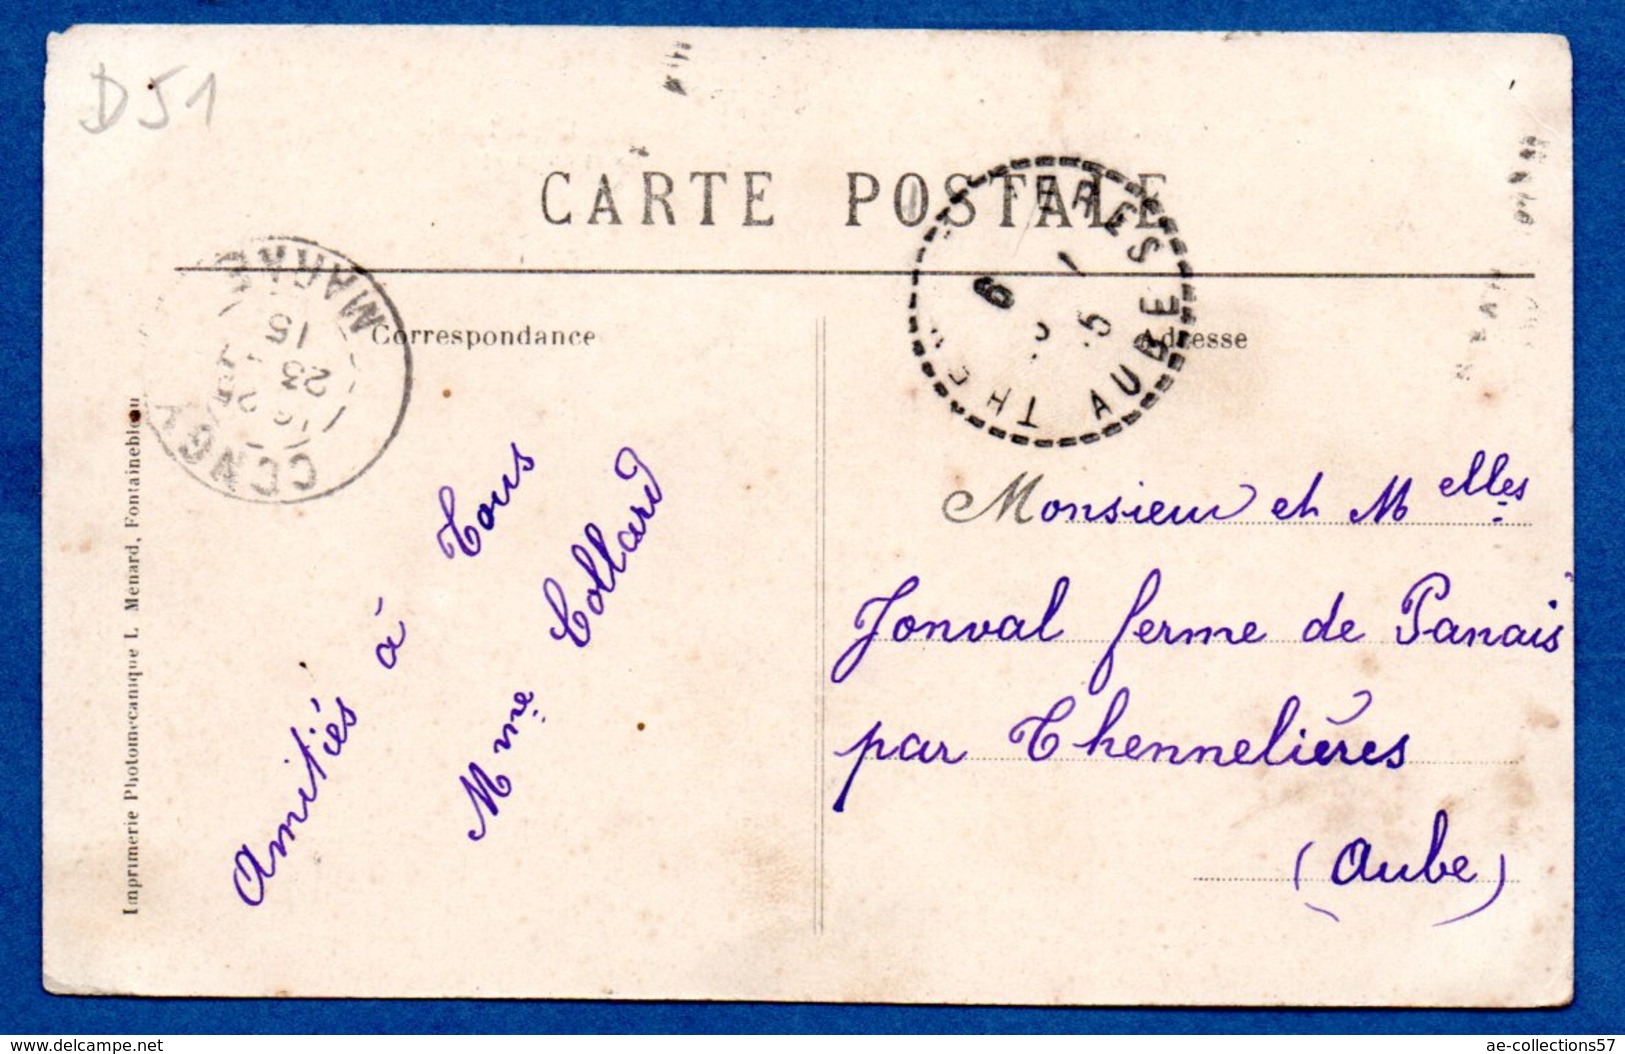 D51
CARTE POSTALE
Correspondance
Adresse
AUBE
Imprimerie Photomecanique L. Menard, Fontainebleau
Amitiés à Tous
Mme Collard
Monsieur et Melles
Jonval ferme de Panais
par Thennelières
(Aube)
www.delcampe.net
ae-collections57